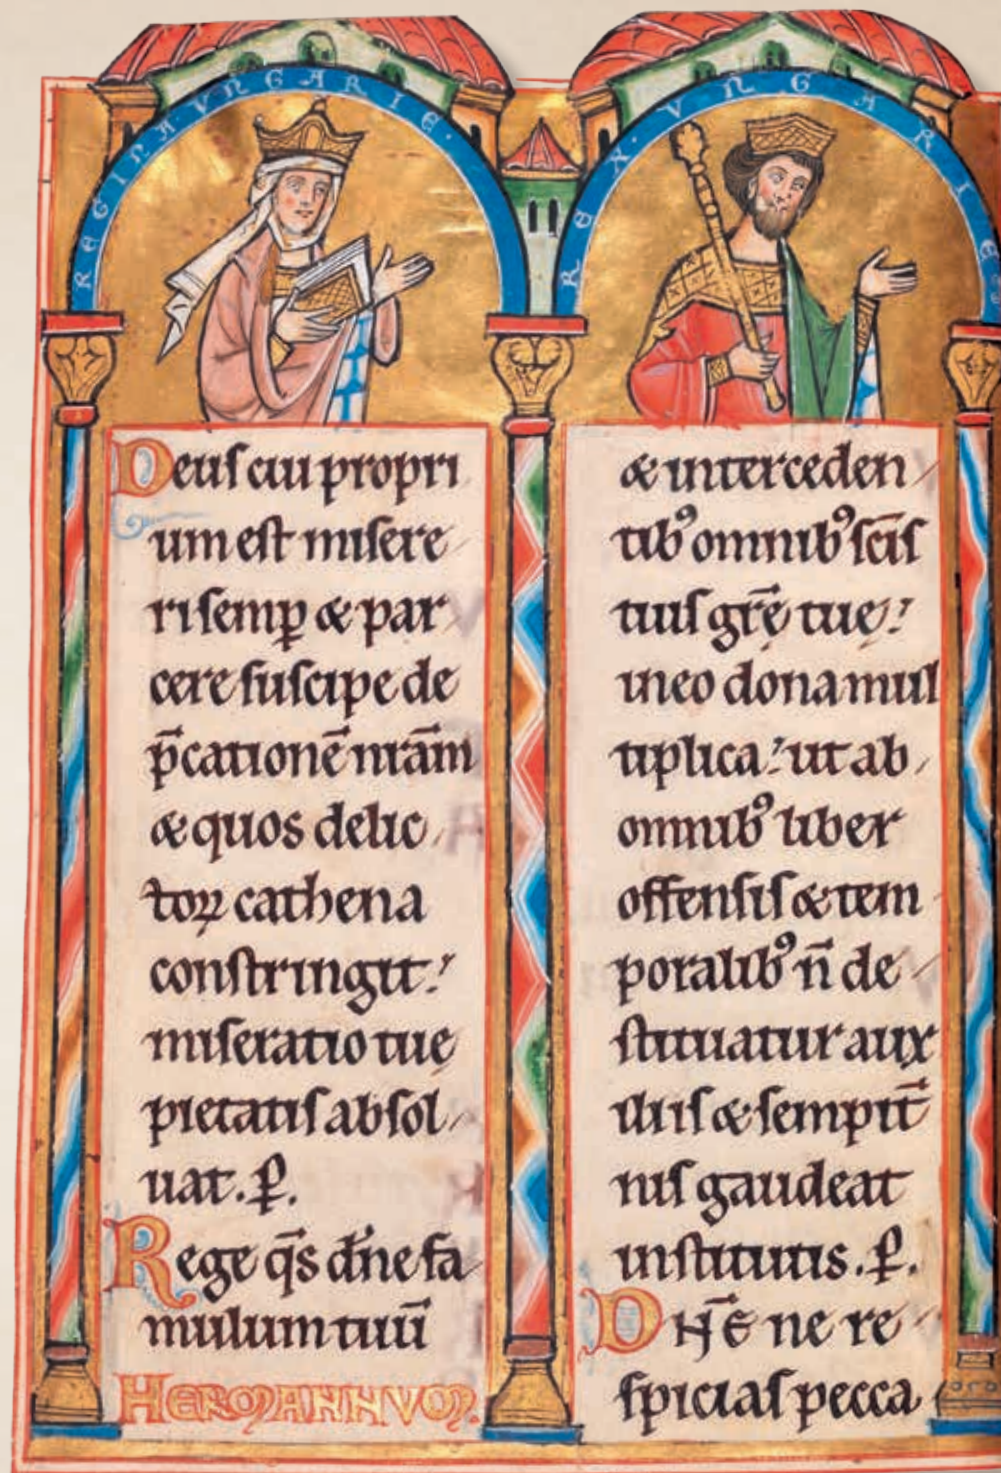 REGINA·VNGARIE·
Deuſ cui propri
um eſt miſere
ri ſemꝑ & par
cere ſuſcipe de
p̄cationē nr̄am
& quos delic
toꝝ cathena
conſtringit:
miſeratio tuę
pietatiſ abſol
uat. ꝑ.
Rege q̄s dn̄e fa
mulum tuū
HERMANNVM.
REX·VNGARIE
& interceden
tib⁹ omnib⁹ ſc̄iſ
tuiſ gr̄ę tuę:
in eo dona mul
tiplica: ut ab
omnib⁹ liber
offenſiſ & tem
poralib⁹ n̄ de
ſtituatur aux
iliiſ & ſempit̄
niſ gaudeat
inſtitutis. ꝑ.
DN̄E ne re
ſpiciaſ pecca